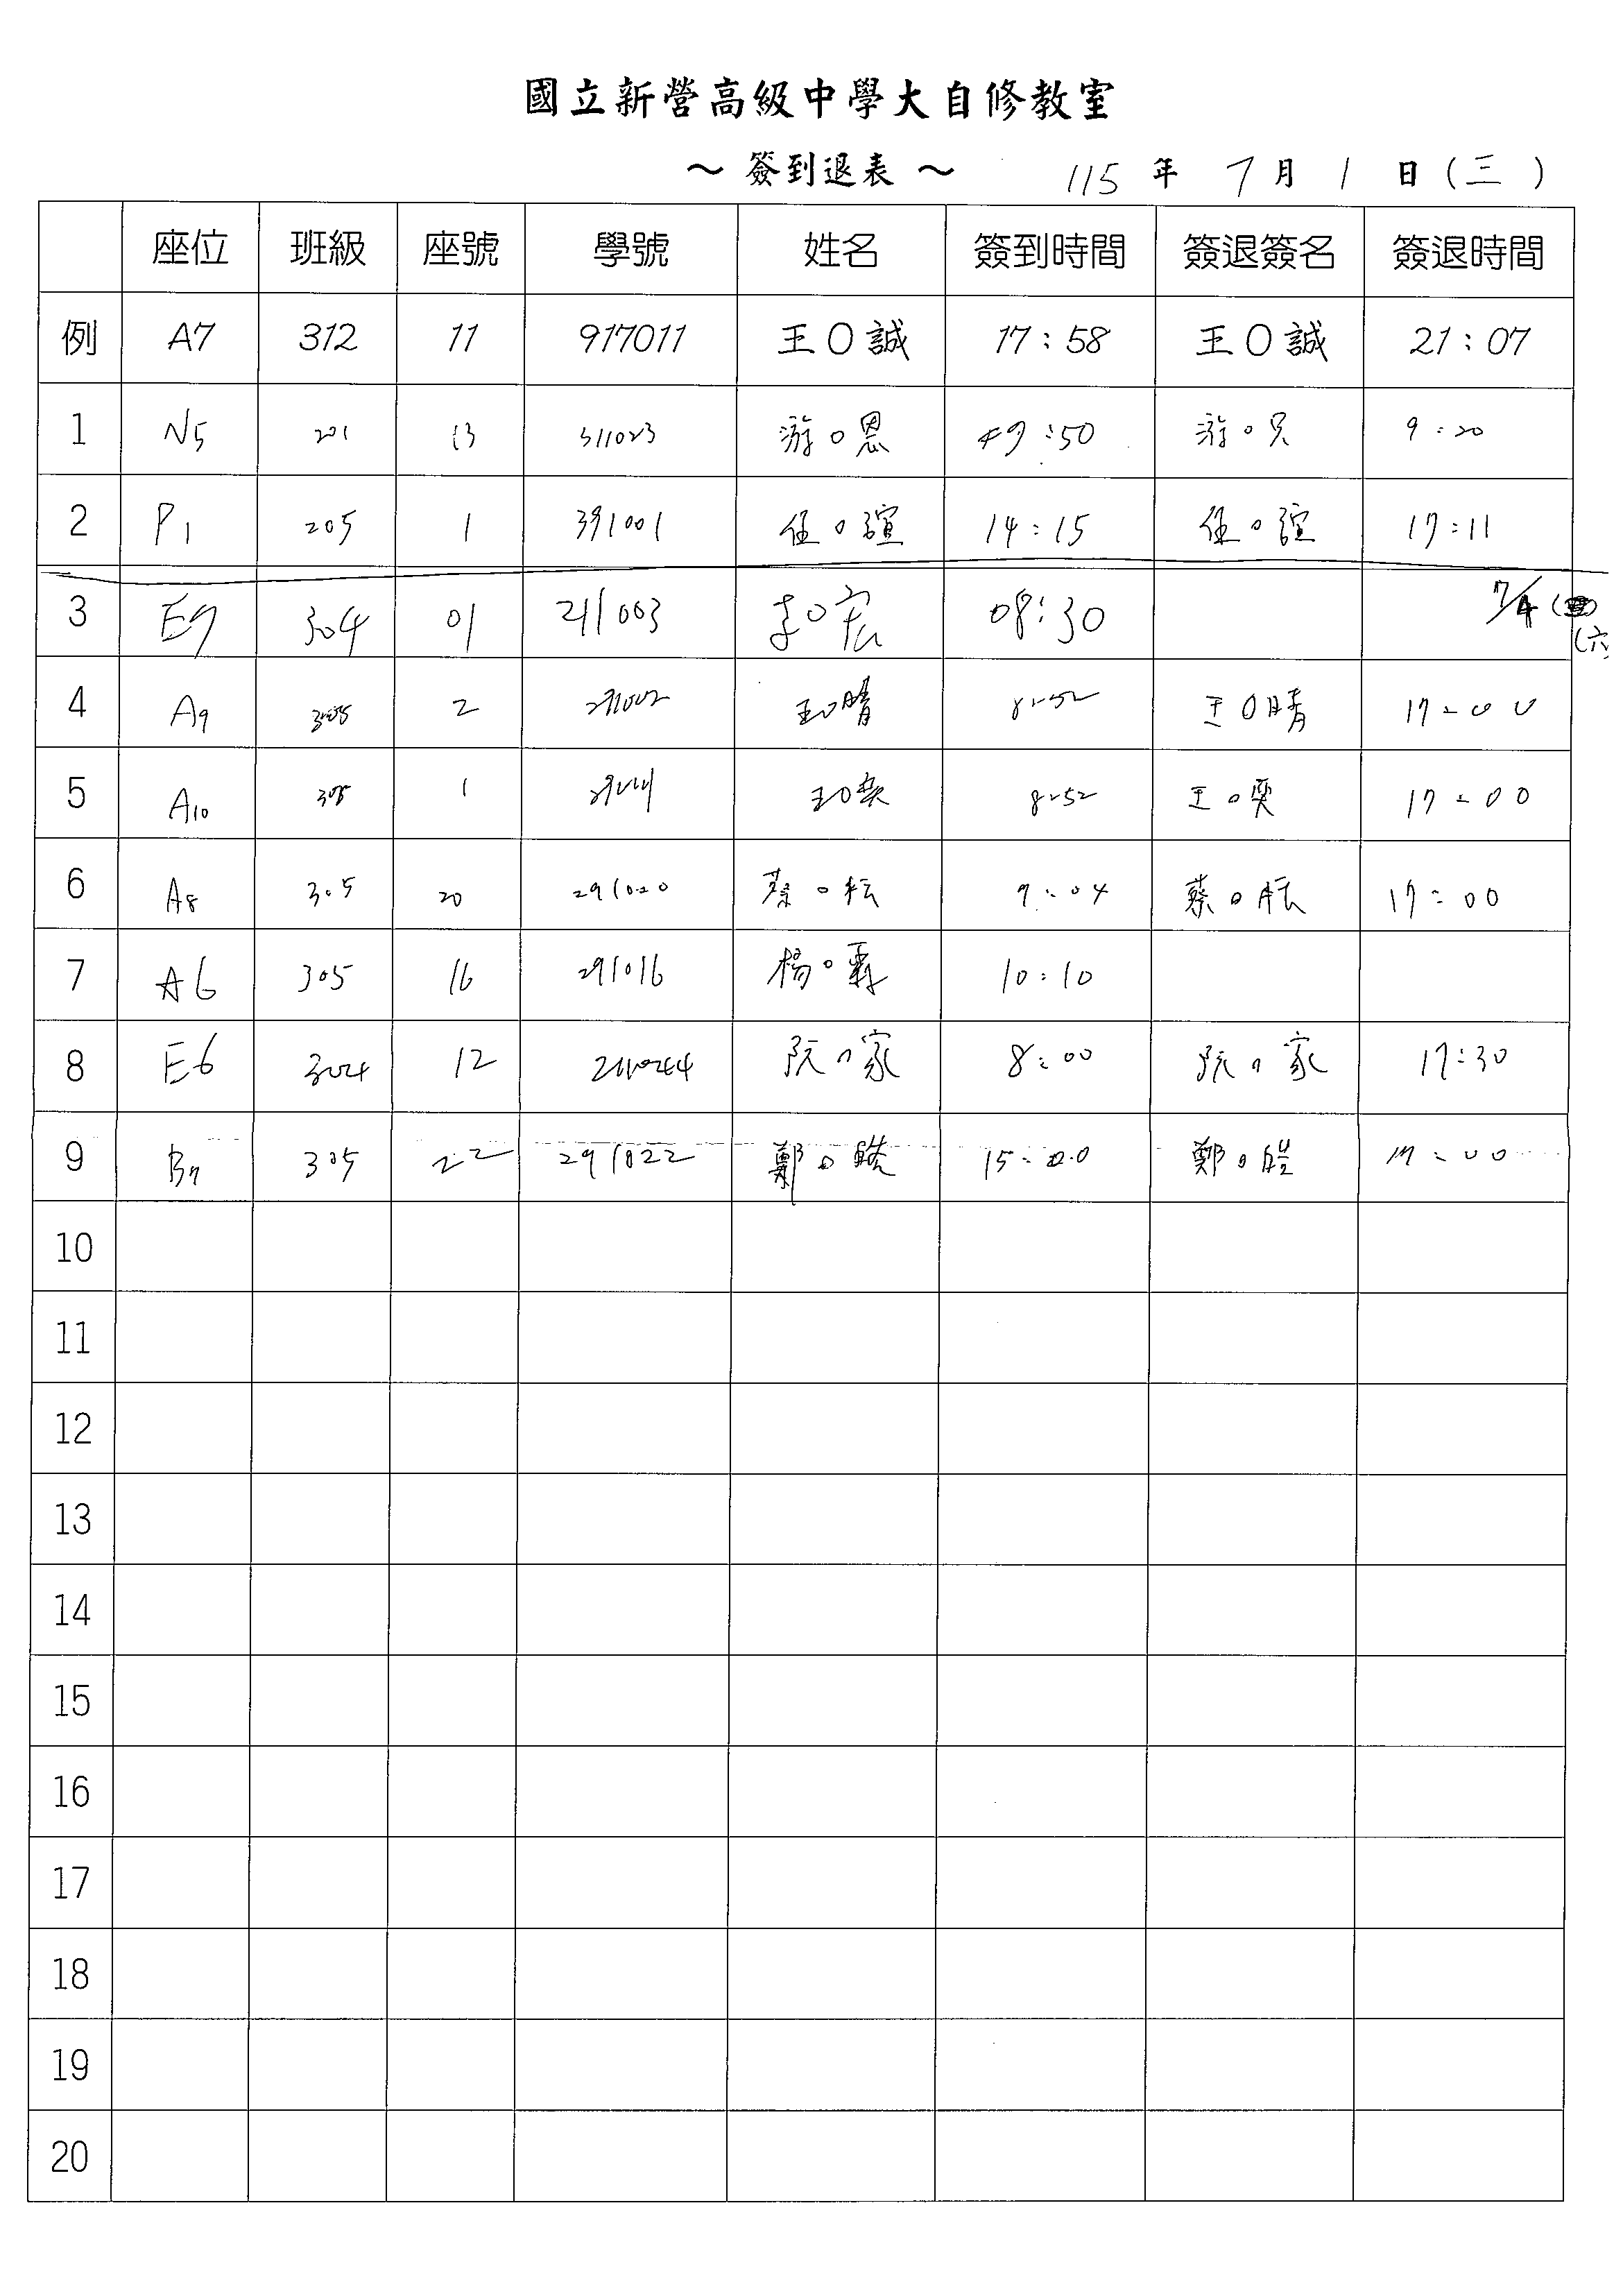 國立新營高級中學大自修教室
～ 簽到退表 ～ 115 年 7 月 1 日 (三)
座位 班級 座號 學號 姓名 簽到時間 簽退簽名 簽退時間
例 A7 312 11 917011 王O誠 17:58 王O誠 21:07
1 N5 201 13 311023 游O恩 9:50 游O 9:20
2 P1 205 1 391001 任O諠 14:15 任O諠 17:11
7/4 (六)
3 E7 304 01 211003 李O宏 08:30
4 A9 305 2 291002 王O晴 8:52 王O晴 17:00
5 A10 305 1 王O奕 8:52 王O奕 17:00
6 A8 305 20 291020 蔡O耘 9:04 蔡O耘 17:00
7 A6 305 16 291016 楊O霖 10:10
8 E6 304 12 211044 阮O家 8:00 阮O家 17:30
9 B7 305 22 291022 鄭O皓 15:00 鄭O皓 17:00
10
11
12
13
14
15
16
17
18
19
20